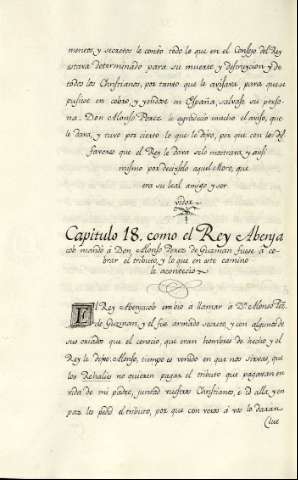 mentos y secretos le conto todo lo que en el Consejo del Rey
estava determinado para su muerte y destruycion y de
todos los Christianos, por tanto que le avisava, para que se
pusiese en cobro, y yendose en España, salvase su perso-
na. Don Alonso Perez le agradecio mucho el aviso, que
le dava, y tuvo por cierto lo que le dijo, por que con les dis
favores que el Rey le dava solo mostrava, y ansi
mismo por decirselo aquel Moro, que
era su leal amigo y ser
vidor
Capitulo 18. como el Rey Abenya
cob mandó á Don Alonso Perez de Guzman fuese á co-
brar el tributo, y lo que en este camino
le acontecio
El Rey Abenjacob embio a llamar á Dn Alonso Pez.
de Guzman, y el fue armado secreto, y con algunos de
sus criados que el conocio, que eran hombres de hecho y el
Rey le dijo. Alonso, tiempo es venido en que nos sirvas, que
los Rehalies no quieren pagar el tributo que pagavan en
vida de mi padre, juntad vuestros Christianos, é id alla, y en
paz les pedid el tributo, por que con veros á vos lo daran
(que